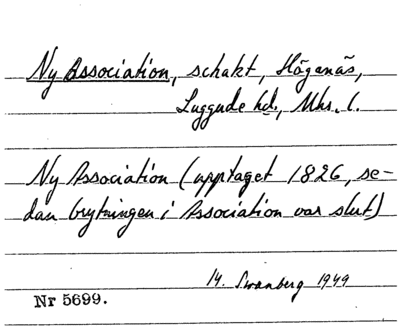 Ny Association, schakt, Höganäs,
Luggude hd., Mhs. l.
Ny Association (upptaget 1826, se-
dan brytningen i Association var slut)
14. Svanberg 1949
Nr 5699.